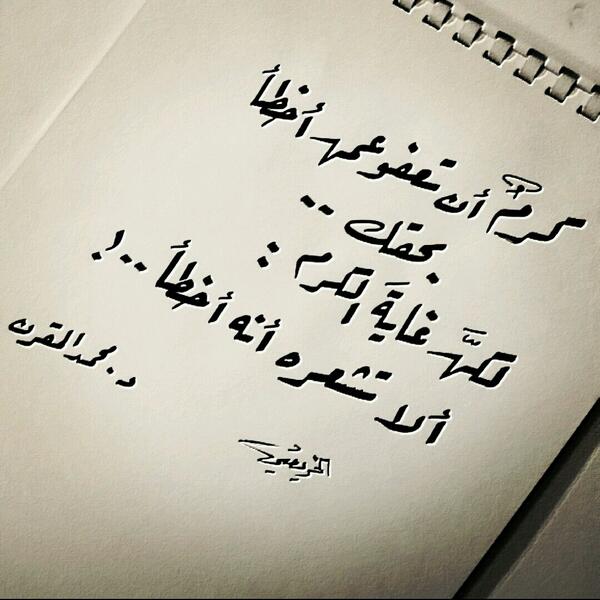 كرمٌ أن تعفو عمن أخطأ
بحقك ..
لكنَّ غايةَ الكرم :
ألا تشعره أنه أخطأ ..!
د. محمد القرن